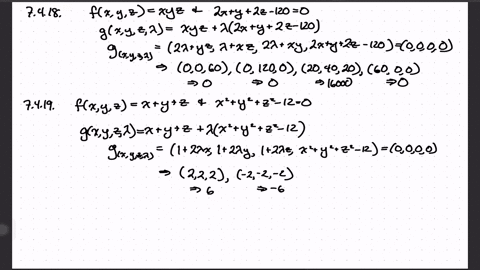 7.4.18. f(x,y,z) = xyz & 2x+y+2z-120=0
g(x,y,z,λ) = xyz + λ(2x+y+2z-120)
g(x,y,z,λ) = (2λ+yz, λ+xz, 2λ+xy, 2x+y+2z-120) = (0,0,0,0)
⇒ (0,0,60), (0,120,0), (20,40,20), (60,0,0)
⇒ 0 ⇒ 0 ⇒ 16000 ⇒ 0
7.4.19. f(x,y,z) = x+y+z & x²+y²+z²-12=0
g(x,y,z,λ) = x+y+z + λ(x²+y²+z²-12)
g(x,y,z,λ) = (1+2λx, 1+2λy, 1+2λz, x²+y²+z²-12) = (0,0,0,0)
⇒ (2,2,2), (-2,-2,-2)
⇒ 6 ⇒ -6